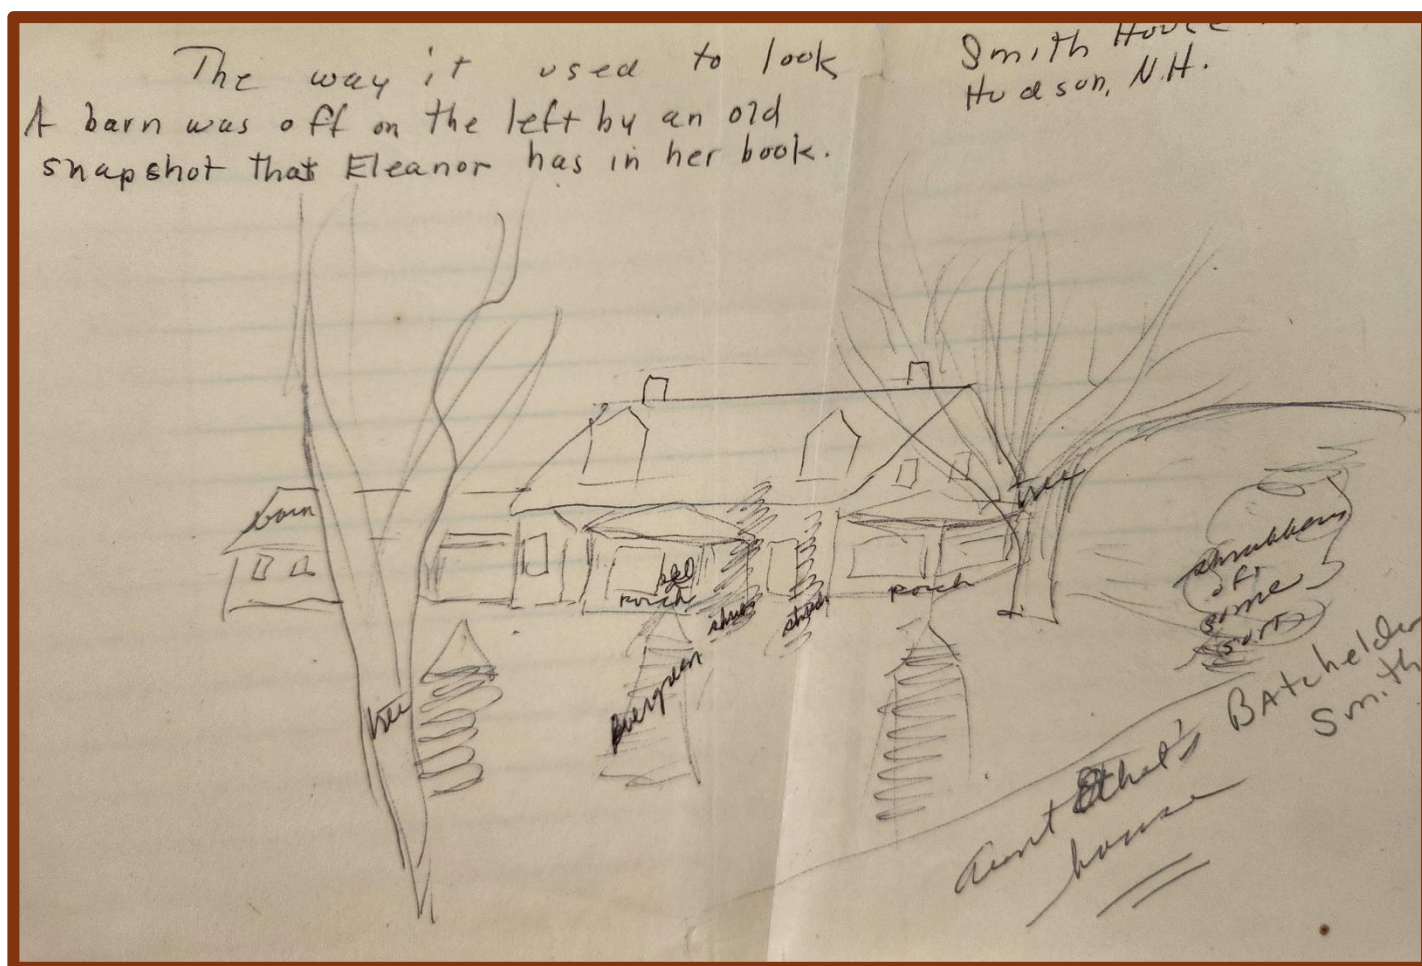 The way it used to look
A barn was off on the left by an old
snapshot that Eleanor has in her book.
Smith House
Hudson, N.H.
barn
tree
porch
shrub
shrub
porch
tree
Evergreen
tree
shrubbery
of
some
sort
Aunt Ethel's Batchelder
Smith
house